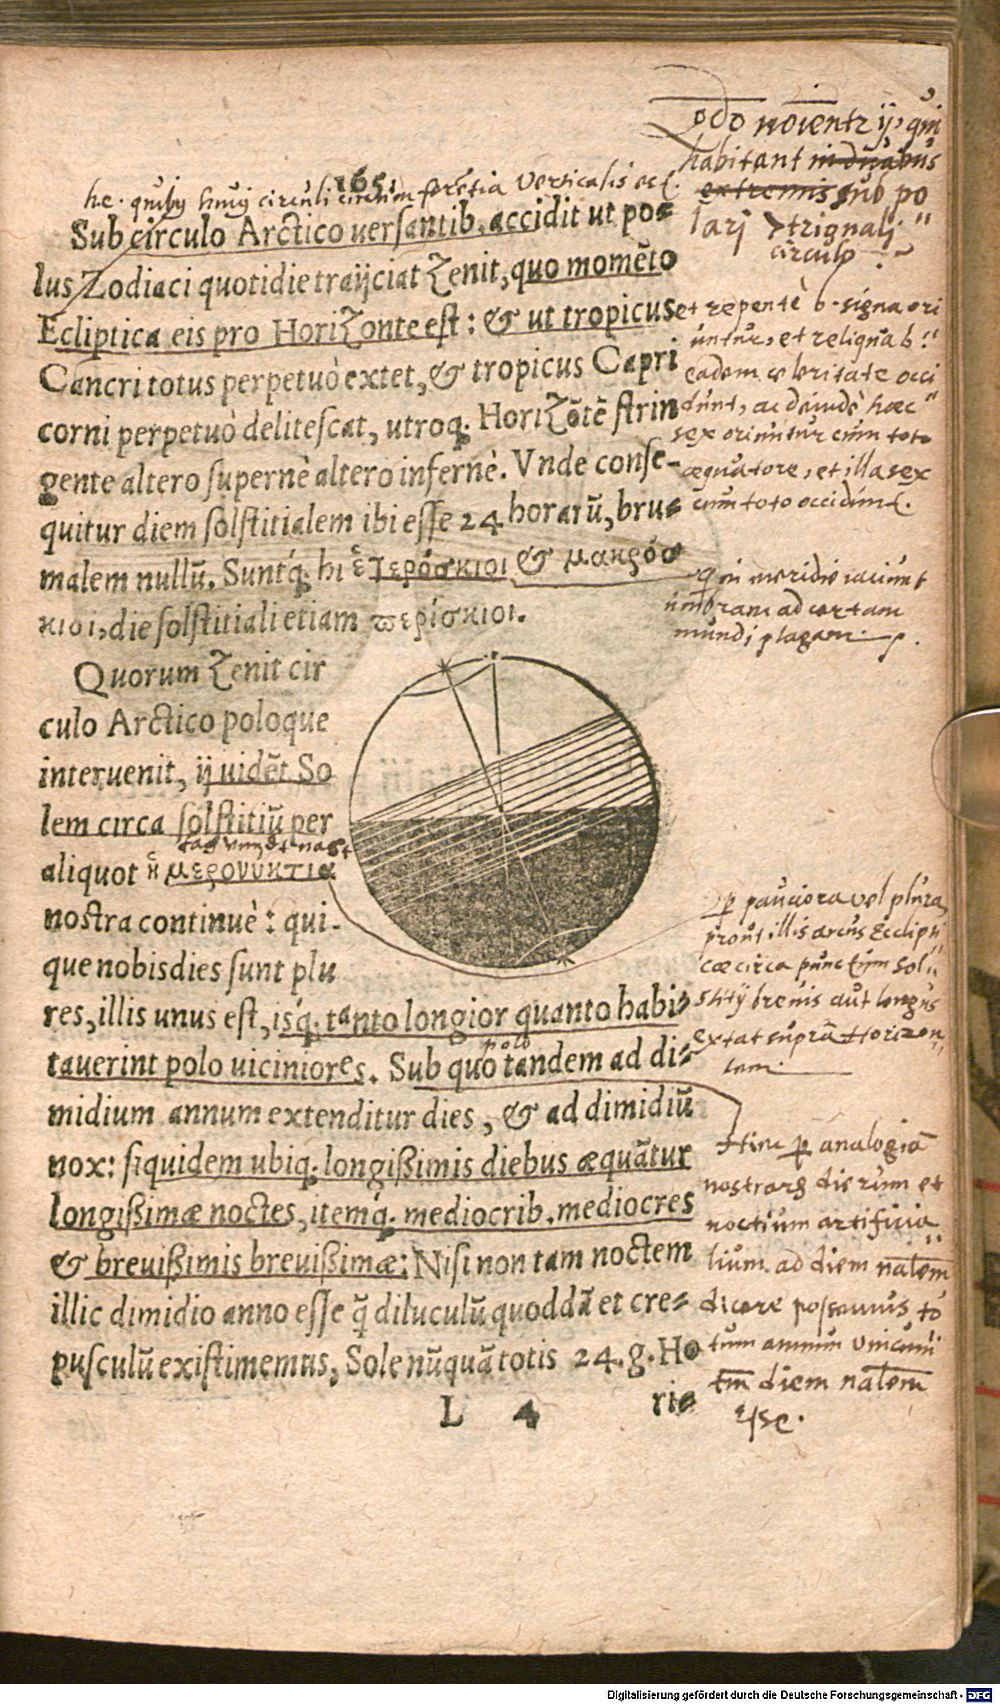 165
he. quibus huius circuli circumferentia Verticalis est.
Sub circulo Arctico uersantib. accidit ut po=
lus Zodiaci quotidie traijciat Zenit, quo momẽto
Ecliptica eis pro Horizonte est: & ut tropicus
Cancri totus perpetuò extet, & tropicus Capri
corni perpetuò delitescat, utroq; Horizõtẽ strin
gente altero supernè altero infernè. Vnde conse-
quitur diem solstitialem ibi esse 24 horarũ, bru=
malem nullũ. Suntq́; hi ἑτερόσκιοι & μακρόσ
κιοι, die solstitiali etiam περίσκιοι.
Quorum Zenit cir
culo Arctico poloque
interuenit, ij uidẽt So
lem circa solstitiũ per
tag vnndt nacht
aliquot ἡμερονύκτια
nostra continuè: qui-
que nobis dies sunt plu
res, illis unus est, isq́; tanto longior quanto habi=
polo
tauerint polo uiciniores. Sub quo tandem ad di=
midium annum extenditur dies, & ad dimidiũ
nox: siquidem ubiq; longißimis diebus æquãtur
longißimæ noctes, itemq́; mediocrib. mediocres
& breuißimis breuißimæ: Nisi non tam noctem
illic dimidio anno esse q̃ diluculũ quoddã et cre=
pusculũ existimemus, Sole nũquã totis 24. g. Ho
L 4
ri=
habitant in duabus
extremis sub po
lari
circulo
et repentè 6. signa ori
untur, et reliqua 6.
eadem celeritate occi
dunt, ac deindè haec
sex oriuntur cum toto
aequatore, et illa sex
cum toto occidunt.
Qui meridie iaciunt
umbram ad certam
mundi plagam.
pauciora vel plura,
prout illis arcus Eclipti
cae circa punctum sol
stitij brevis aut longus
extat supra Horizon
tem.
Hinc p analogiã
nostrarum dierum et
noctium artificia
lium ad diem nãlem
dicere possumus to
tum annum unicum
tm diem nãlem
esse.